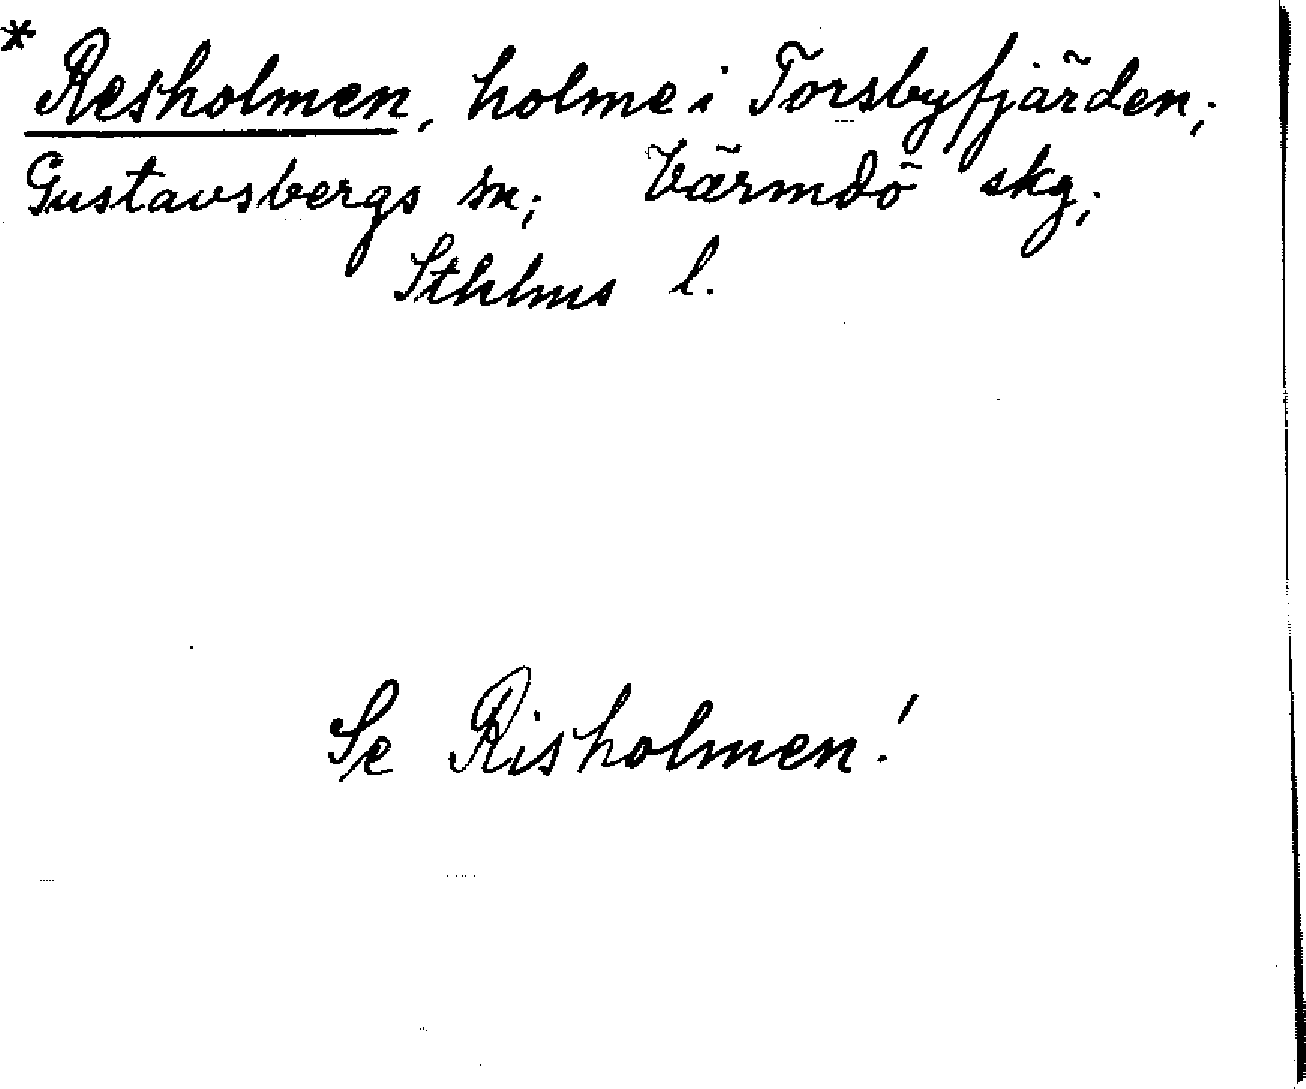 * Resholmen, holme i Torsbyfjärden;
Gustavsbergs sn; Värmdö skg;
Sthlms l.
Se Risholmen!